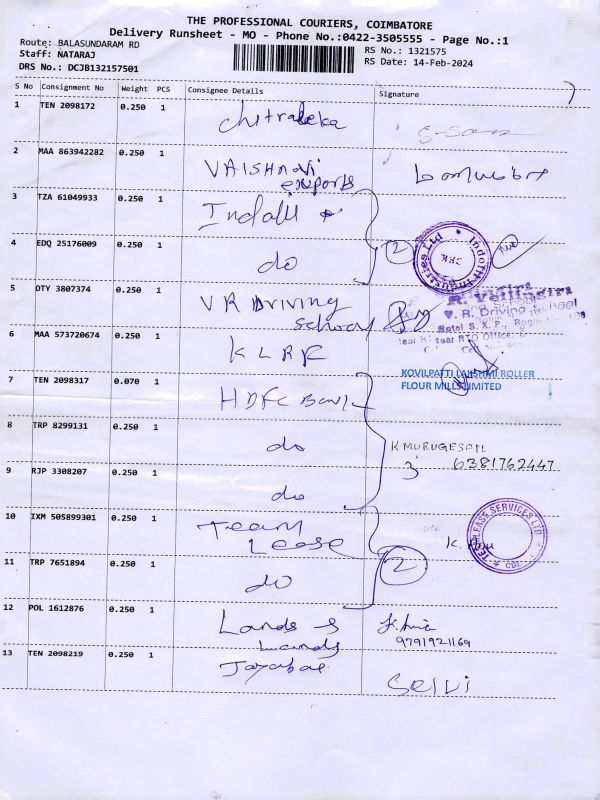 THE PROFESSIONAL COURIERS, COIMBATORE
Delivery Runsheet - MO - Phone No.:0422-3505555 - Page No.:1
Route: BALASUNDARAM RD
RS No.: 1321575
Staff: NATARAJ
RS Date: 14-Feb-2024
DRS No.: DCJB132157501
S No Consignment No Weight PCS Consignee Details Signature
1 TEN 2098172 0.250 1 Chitraleka
2 MAA 863942282 0.250 1 VAISHNAVi exports
3 TZA 61049933 0.250 1
4 EDQ 25176009 0.250 1 do 2
5 OTY 3807374 0.250 1 VR Driving School
V. R. Driving School
6 MAA 573720674 0.250 1 KLRF
KOVILPATTI LAKSHMI ROLLER
FLOUR MILLS LIMITED
7 TEN 2098317 0.070 1 HDFC Bank
8 TRP 8299131 0.250 1 do K MURUGESAN
6381762447
9 RJP 3308207 0.250 1 do 3
10 IXM 505899301 0.250 1 Team Lease
TEAMLEASE SERVICES LTD
CBE
11 TRP 7651894 0.250 1 do 2
12 POL 1612876 0.250 1 Lands & Lands
9791921169
13 TEN 2098219 0.250 1 Selvi